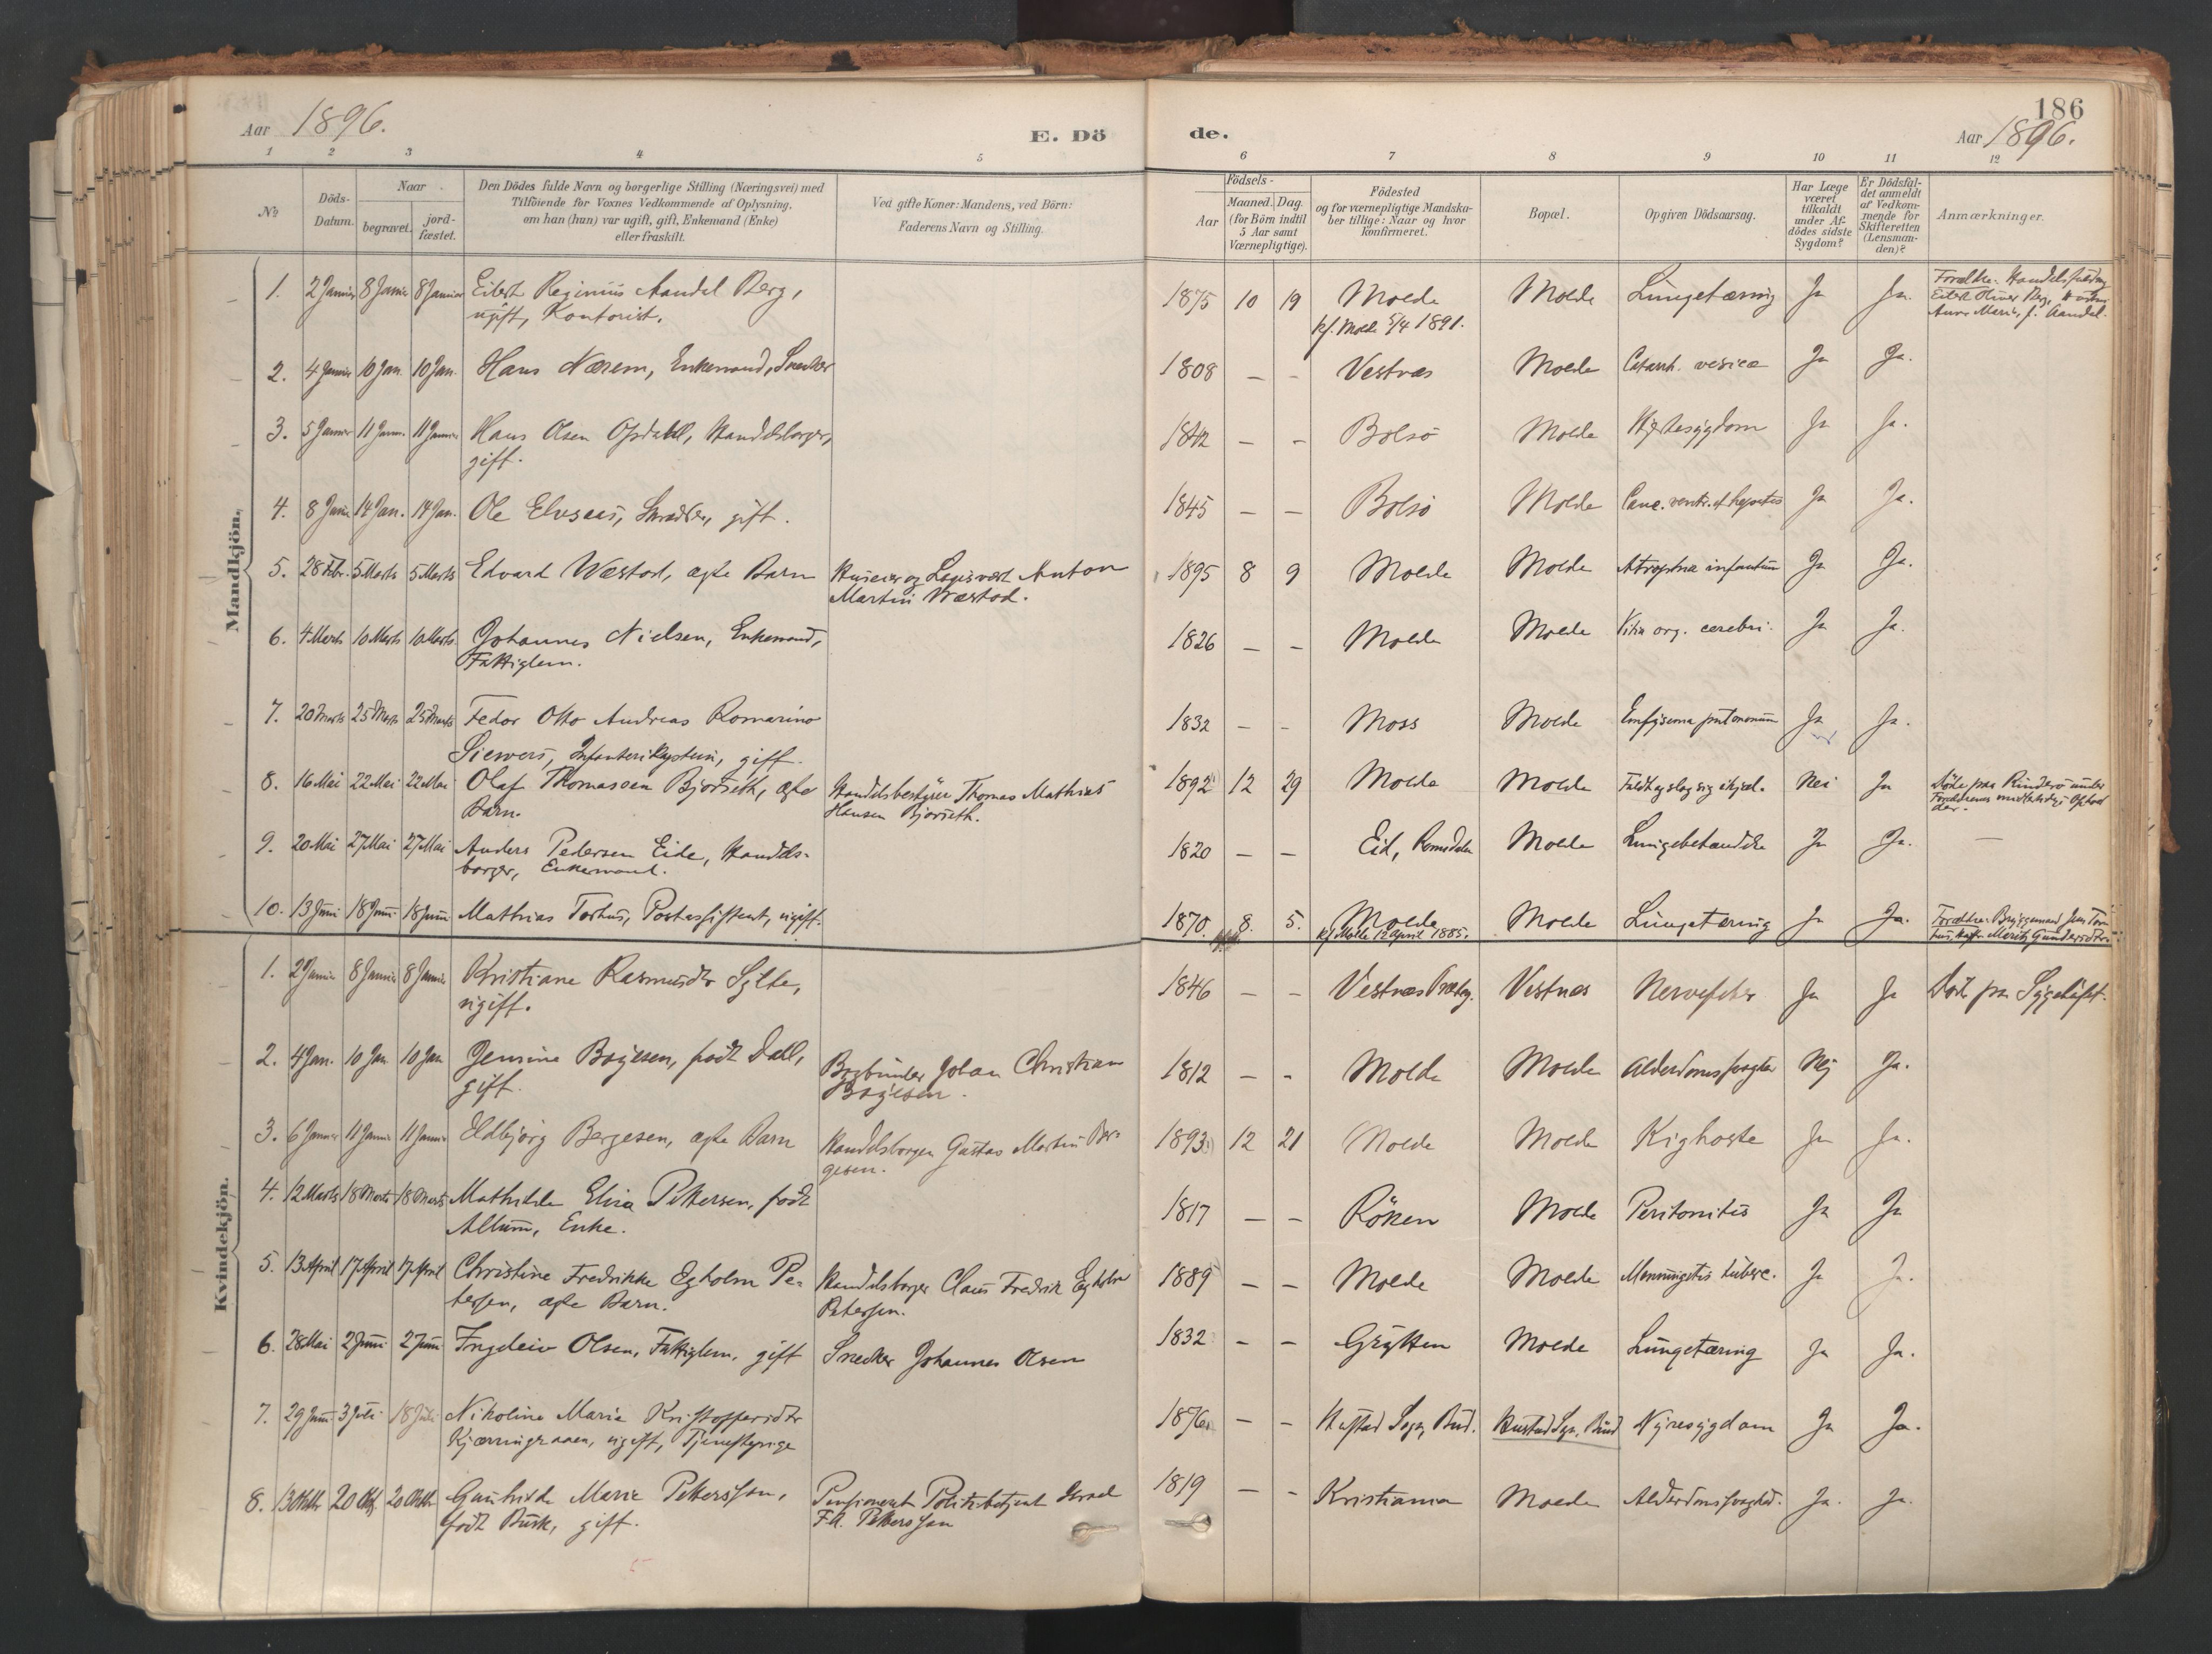 186
Aar 1896.
E. Dö de.
Aar 1896.
1 2 3 4 5 6 7 8 9 10 11 12
№
Döds-
Datum.
Naar
begravet.
jord-
fæstet.
Den Dödes fulde Navn og borgerlige Stilling (Næringsvei) med
Tilföiende for Voxnes Vedkommende af Oplysning,
om han (hun) var ugift, gift, Enkemand (Enke)
eller fraskilt.
Ved gifte Koner: Mandens, ved Börn:
Faderens Navn og Stilling.
Födsels-
Aar
Maaned. Dag
(for Börn indtil
5 Aar samt
Værnepligtige).
Födested
og for værnepligtige Mandska-
ber tillige: Naar og hvor
konfirmeret.
Bopæl.
Opgiven Dödsaarsag.
Har Læge
været
tilkaldt
under Af-
dödes sidste
Sygdom?
Er Dödsfal-
det anmeldt
af Vedkom-
mende for
Skifteretten
(Lensman-
den)?
Anmærkninger.
Mandkjön.
1. 2 Januar 8 Januar 8 Januar Eilert Reginius Aandal Berg, 1875 10 19 Molde Molde Lungetæring Ja Ja. Forældre: Handelsfuldm.
ugift, Kontorist. kf. Molde 5/4 1891. Eilert Oliver Berg, Hustru
Anne Marie, f. Aandal.
2. 4 Januar 10 Jan. 10 Jan. Hans Nærem, Enkemand, Snedker 1808 — - Vestnæs Molde Catarrh. vesicæ Ja Ja.
3. 5 Januar 11 Januar 11 Januar Hans Olsen Opdahl, Handelsborger, 1842 — - Bolsö Molde Hjertesygdom Ja Ja.
gift.
4. 8 Januar 14 Jan. 14 Jan. Ole Elvsaas, Skrædder, gift. 1845 — — Bolsö Molde Canc. ventr. et hepatis Ja Ja.
5. 28 Febr. 5 Marts 5 Marts Edvard Wæstad, ægte Barn Huseier og Logisvært Anton 1895 8 9 Molde Molde Atrophia infantum Ja Ja.
Martin Wæstad.
6. 4 Marts 10 Marts 10 Marts Johannes Nielsen, Enkemand, 1826 — - Molde Molde Vitia org. cerebri. Ja Ja.
Fattiglem.
7. 20 Marts 25 Marts 25 Marts Fedor Otto Andreas Romarino 1832 — - Moss Molde Emfysema pulmonum Ja Ja.
Siewers, Infanterikaptein, gift.
8. 16 Mai 22 Mai 22 Mai Olaf Thomassen Bjorseth, ægte Handelsbestyrer Thomas Mathias 1892 12 29 Molde Molde Faldt og slog sig ihjel. Nei Ja Döde paa Rinderö under
Barn. Hansen Bjorseth. Forældrenes midlertidige Ophol
der.
9. 20 Mai 27 Mai 27 Mai Anders Pedersen Eide, Handels- 1820 — — Eid, Romsdalen Molde Lungebetændelse Ja Ja. —
borger, Enkemand.
10. 13 Juni 18 Juni 18 Juni Mathias Torhus, Postassistent, ugift. 1870. 8. 5. Molde Molde Lungetæring Ja Ja. Forældre: Bryggemand Jens Tor-
kf. Molde 12 April 1885. hus, Marith Gundersdtr.
Kvindekjön.
1. 2 Januar 8 Januar 8 Januar Kristiane Rasmusdtr Sylte, 1846 — - Vestnæs Præstegj. Vestnæs Nervefeber Ja Ja Döde paa Sygehuset.
ugift.
2. 4 Jan. 10 Jan 10 Jan Jensine Böyesen, födt Dall, Bogbinder Johan Christian 1812 — - Molde Molde Alderdomssvaghed Nej Ja.
gift. Böyesen.
3. 6 Januar 11 Januar 11 Januar Eldbjörg Bergesen, ægte Barn Handelsborger Gustav Martin Ber- 1893 12 21 Molde Molde Kighoste Ja Ja.
gesen.
4. 12 Marts 18 Marts 18 Marts Mathilde Elisa Pettersen, födt 1817 — - Röken Molde Peritonitis Ja Ja
Allum, Enke.
5. 13 April 17 April 17 April Christine Fredrikke Egholm Pe- Handelsborger Claus Fredrik Egholm 1889 — - Molde Molde Menningitis tuberc. Ja Ja.
tersen, ægte Barn. Petersen.
6. 28 Mai 2 Juni 2 Juni Ingeleiv Olsen, Fattiglem, gift Snedker Johannes Olsen 1832 — - Grytten Molde Lungetæring Ja Ja.
7. 29 Juni 3 Juli 18 Juli Nikoline Marie Kristoffersdtr 1876 — - Hustad Sogn, Bud. Hustad Sgn. Bud Nyresygdom Ja Ja.
Kjærringraaen, ugift, Tjenestepige
8. 13 Oktbr 20 Okt. 20 Oktbr Gunhilde Marie Petterssen, Pensioneret Politibetjent Israel 1819 — - Kristiania Molde Alderdomssvaghed. Ja. Ja.
födt Busk, gift. F.A. Petterssen